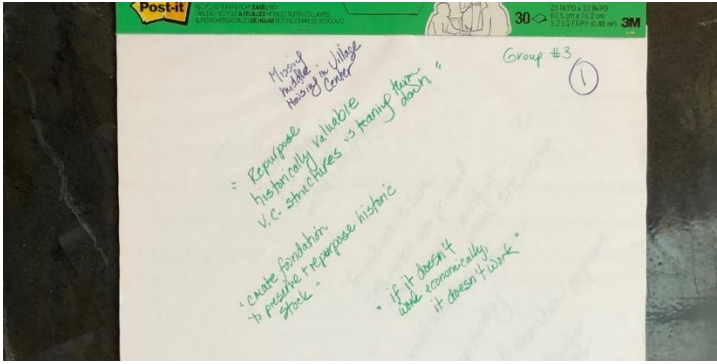 Post-it
30
25 IN PO x 30 IN PO
63.5 cm x 76.2 cm
3M
Group #3
1
Missing
middle
Housing in Village
Center
" Repurpose
historically valuable
V.C. structures vs tearing them
down "
" create foundation
to preserve + repurpose historic
stock "
" if it doesn't
work economically,
it doesn't work "